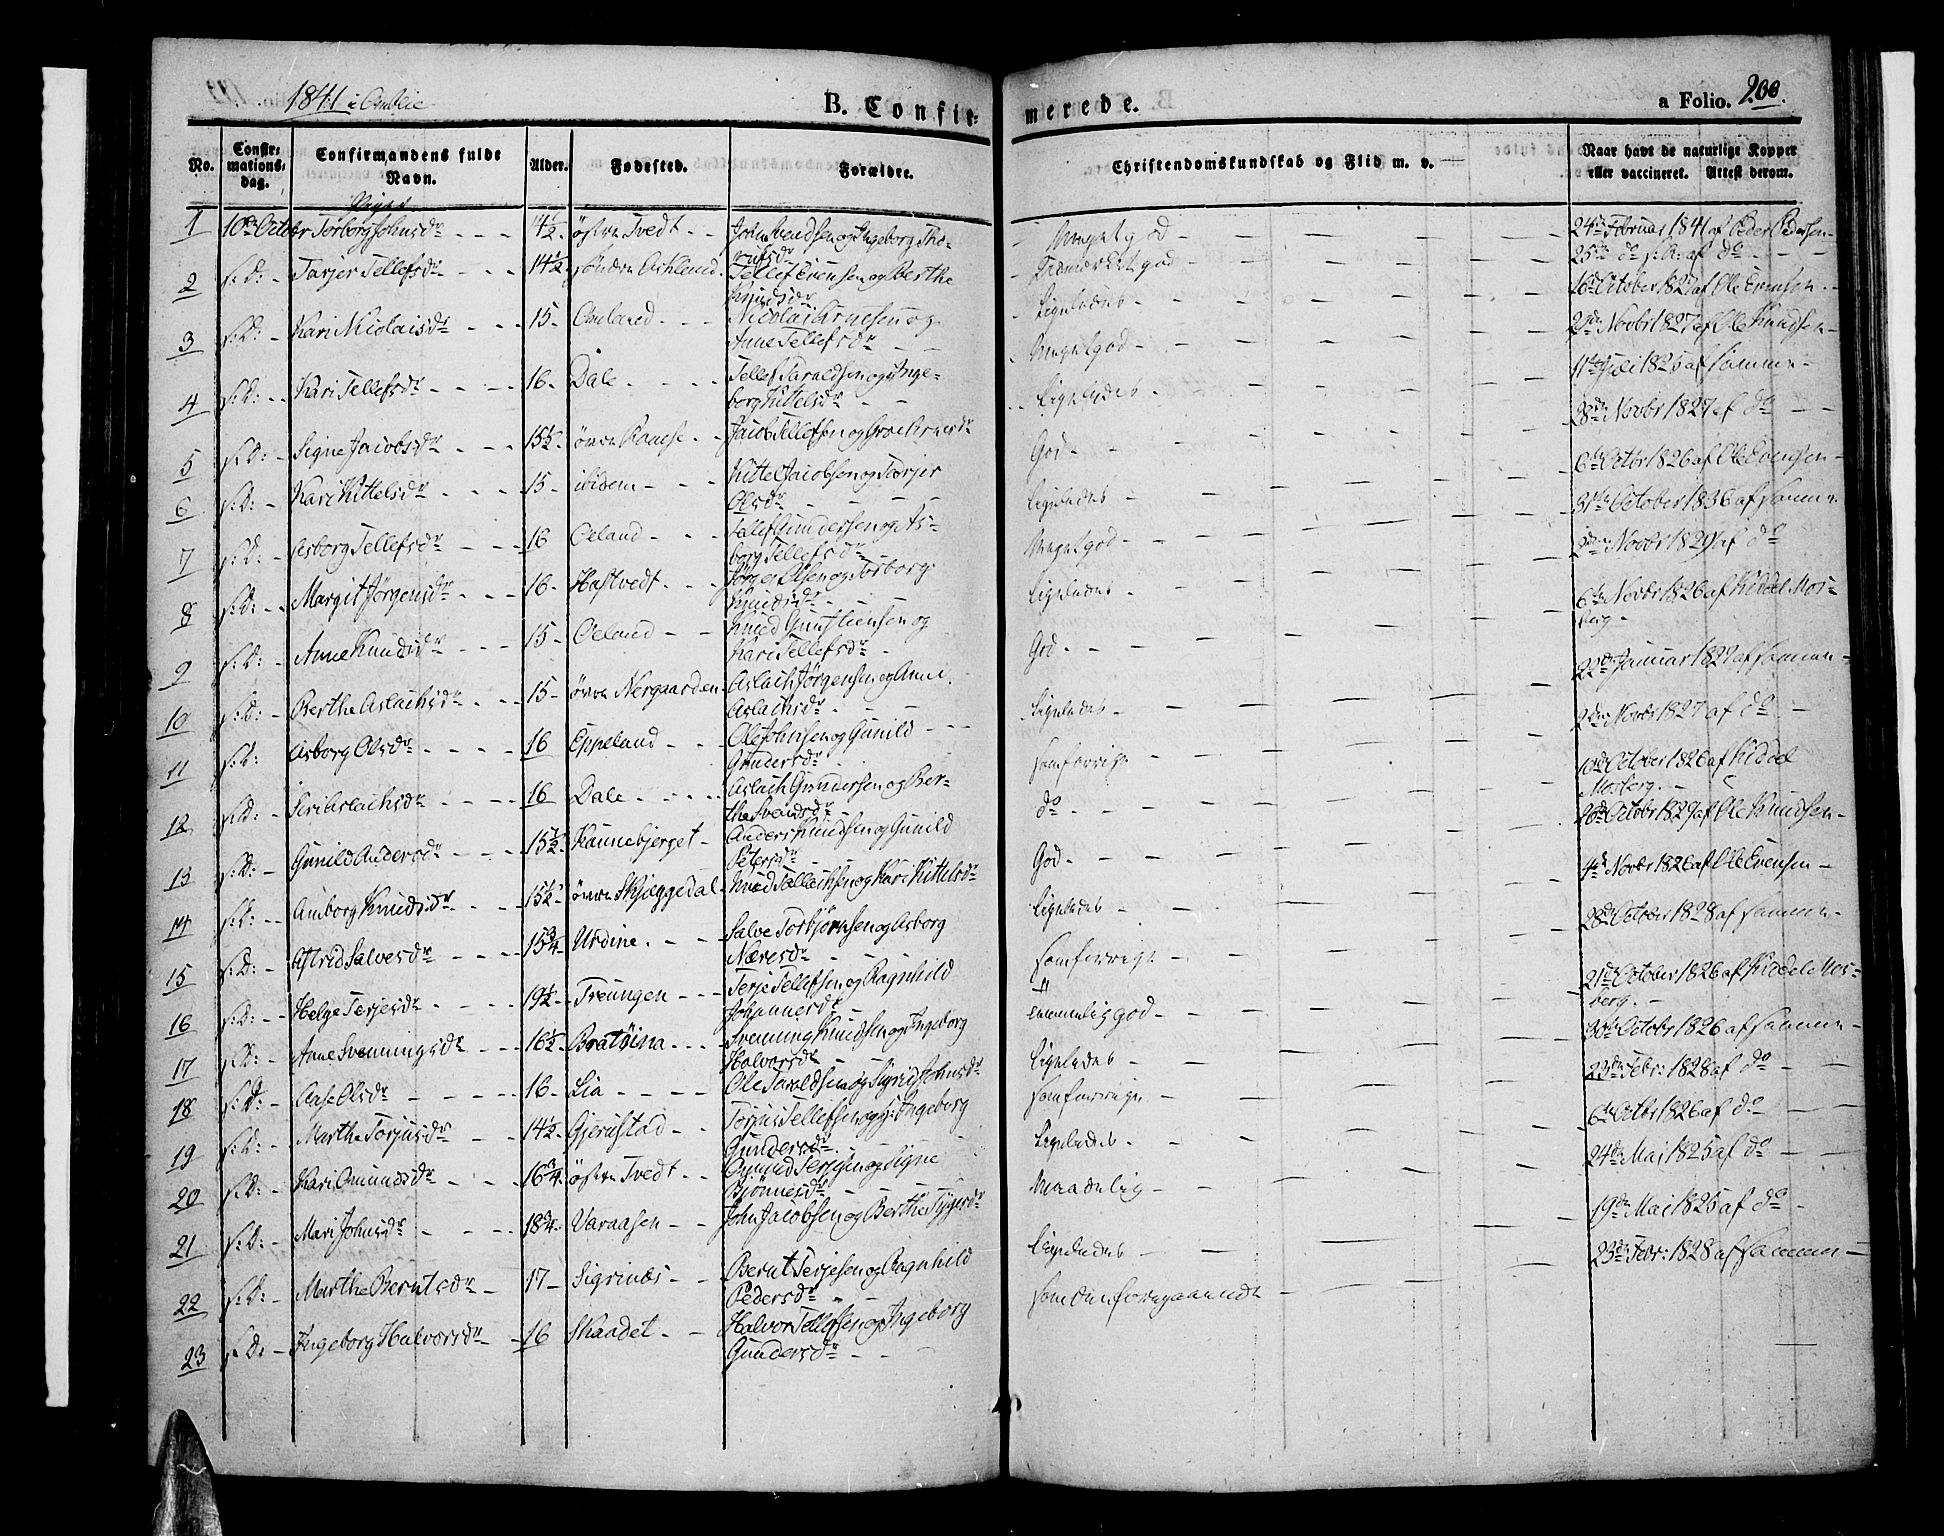 1841 i Omlie
B. Confir-
merede.
a Folio. 200.
No.
Confirmationsdag.
Confirmandens fulde Navn.
Alder.
Fødested.
Forældre.
Christendomskundskab og Flid m. v.
Naar havt de naturlige Kopper eller vaccineret. Attest derom.
Piger
1 10de Octbr Torborg Johnsdr 14½ østre Tvedt John Svendsen og Ingeborg Tho- Meget god 24de Februar 1841 af Peder Pedersen
2 s: D: Tarjer Tellefsdr 14½ søndre Askland Tellef Evensen og Berthe Knudsdr Udmærket god 25de do s. A: af do
3 s: D: Kari Nicolaisdr 15 Omland Nicolai Arnesen og Anne Tellefsdr Ligeledes 16de October 1827 af Ole Evensen
4 s: D: Kari Tellefsdr 16 Dale Tellef Taraldsen og Inge- borg Kittelsdr Meget god 2den Novbr 1827 af Ole Knudsen
5 s: D: Signe Jacobsdr 15½ Jacob Tellefsen og Ligeledes 11te Juli 1825 af samme
6 s: D: Kari Kittelsdr 15 ibidem Kittel Jacobsen og Tarjer Olsdr God 28de Novbr 1827 af do
7 s: D: Asborg Tellefsdr 16 Oeland Tallef Gundersen og As- borg Tellefsdr Ligeledes 6te Octbr 1826 af Ole Evensen
8 s: D: Margit Jørgensdr 16 Hastvedt Jørgen Olsen og Torborg Knudsdr Meget god 31te October 1836 af samme
9 s: D: Anne Knudsdr 15 Oeland Knud Kari Tellefsdr Ligeledes Novbr 1829 af do
10 s: D: Berthe Aslachsdr 15 øvre Nergaarden Aslach Jørgensen og Anne Aslachsdr God 6te Novbr 1826 af Kiddel Mos- berg
11 s: D: Asborg Olsdr 16 Eppeland Ole Johnsen og Gunild Gundersdr Ligeledes 22de Januar 1829 af samme
12 s: D: Siri Aslachsdr 16 Dale Aslach Gundersen og Ber- the Svendsdr som forrige 2den Novbr 1827 af do
13 s: D: Gunild Andersdr 15½ Kannebjerget Anders Knudsen og Gunild Petersdr do 10de October 1826 af Kiddel Mosberg
14 s: D: Amborg Knudsdr 15½ øvre Skjæggedal Knud Tellachsen og Kari Kittelsdr God 26de October 1829 af Ole Knudsen
15 s: D: Astrid Salvesdr 15¾ Urdine Salve Torbjørnsen og Asborg Næresdr Ligeledes 4de Novbr 1826 af Ole Evensen
16 s: D: Helge Terjesdr 19½ Treungen Terje Tellefsen og Ragnhild Johannesdr som forrige 28de October 1828 af samme
17 s: D: Anne Svenningsdr 16½ Bratøina Svenning Knudsen og Ingeborg Halvorsdr temmelig god 21de October 1826 af Kiddel Mos- berg
18 s: D: Aase Olsdr 16 Lia Ole Taraldsen og Sigrid Johnsdr Ligeledes 30de Octobr 1826 af samme
19 s: D: Marthe Torjusdr 14½ Gjerustad Torjus Tellefsen og Ingeborg Gundersdr som forrige 23de Febr: 1828 af do
20 s: D: Kari Omundsdr 16¾ østre Tvedt Omund Terjesen og Signe Bjønnesdr Ligeledes 6te Octbr 1826 af do
21 s: D: Mari Johnsdr 18¾ Varaasen John Jacobsen og Berthe Maadelig 24de Mai 1825 af do
22 s: D: Marthe Berntsdr 17 Sigrinæs Bernt Terjesen og Ragnhild Pedersdr Ligeledes 19de Mai 1825 af do
23 s: D: Ingeborg Halvorsdr 16 Skaadet Halvor Tellefsen og Ingeborg Gundersdr som den foregaaende 23de Febr: 1828 af samme